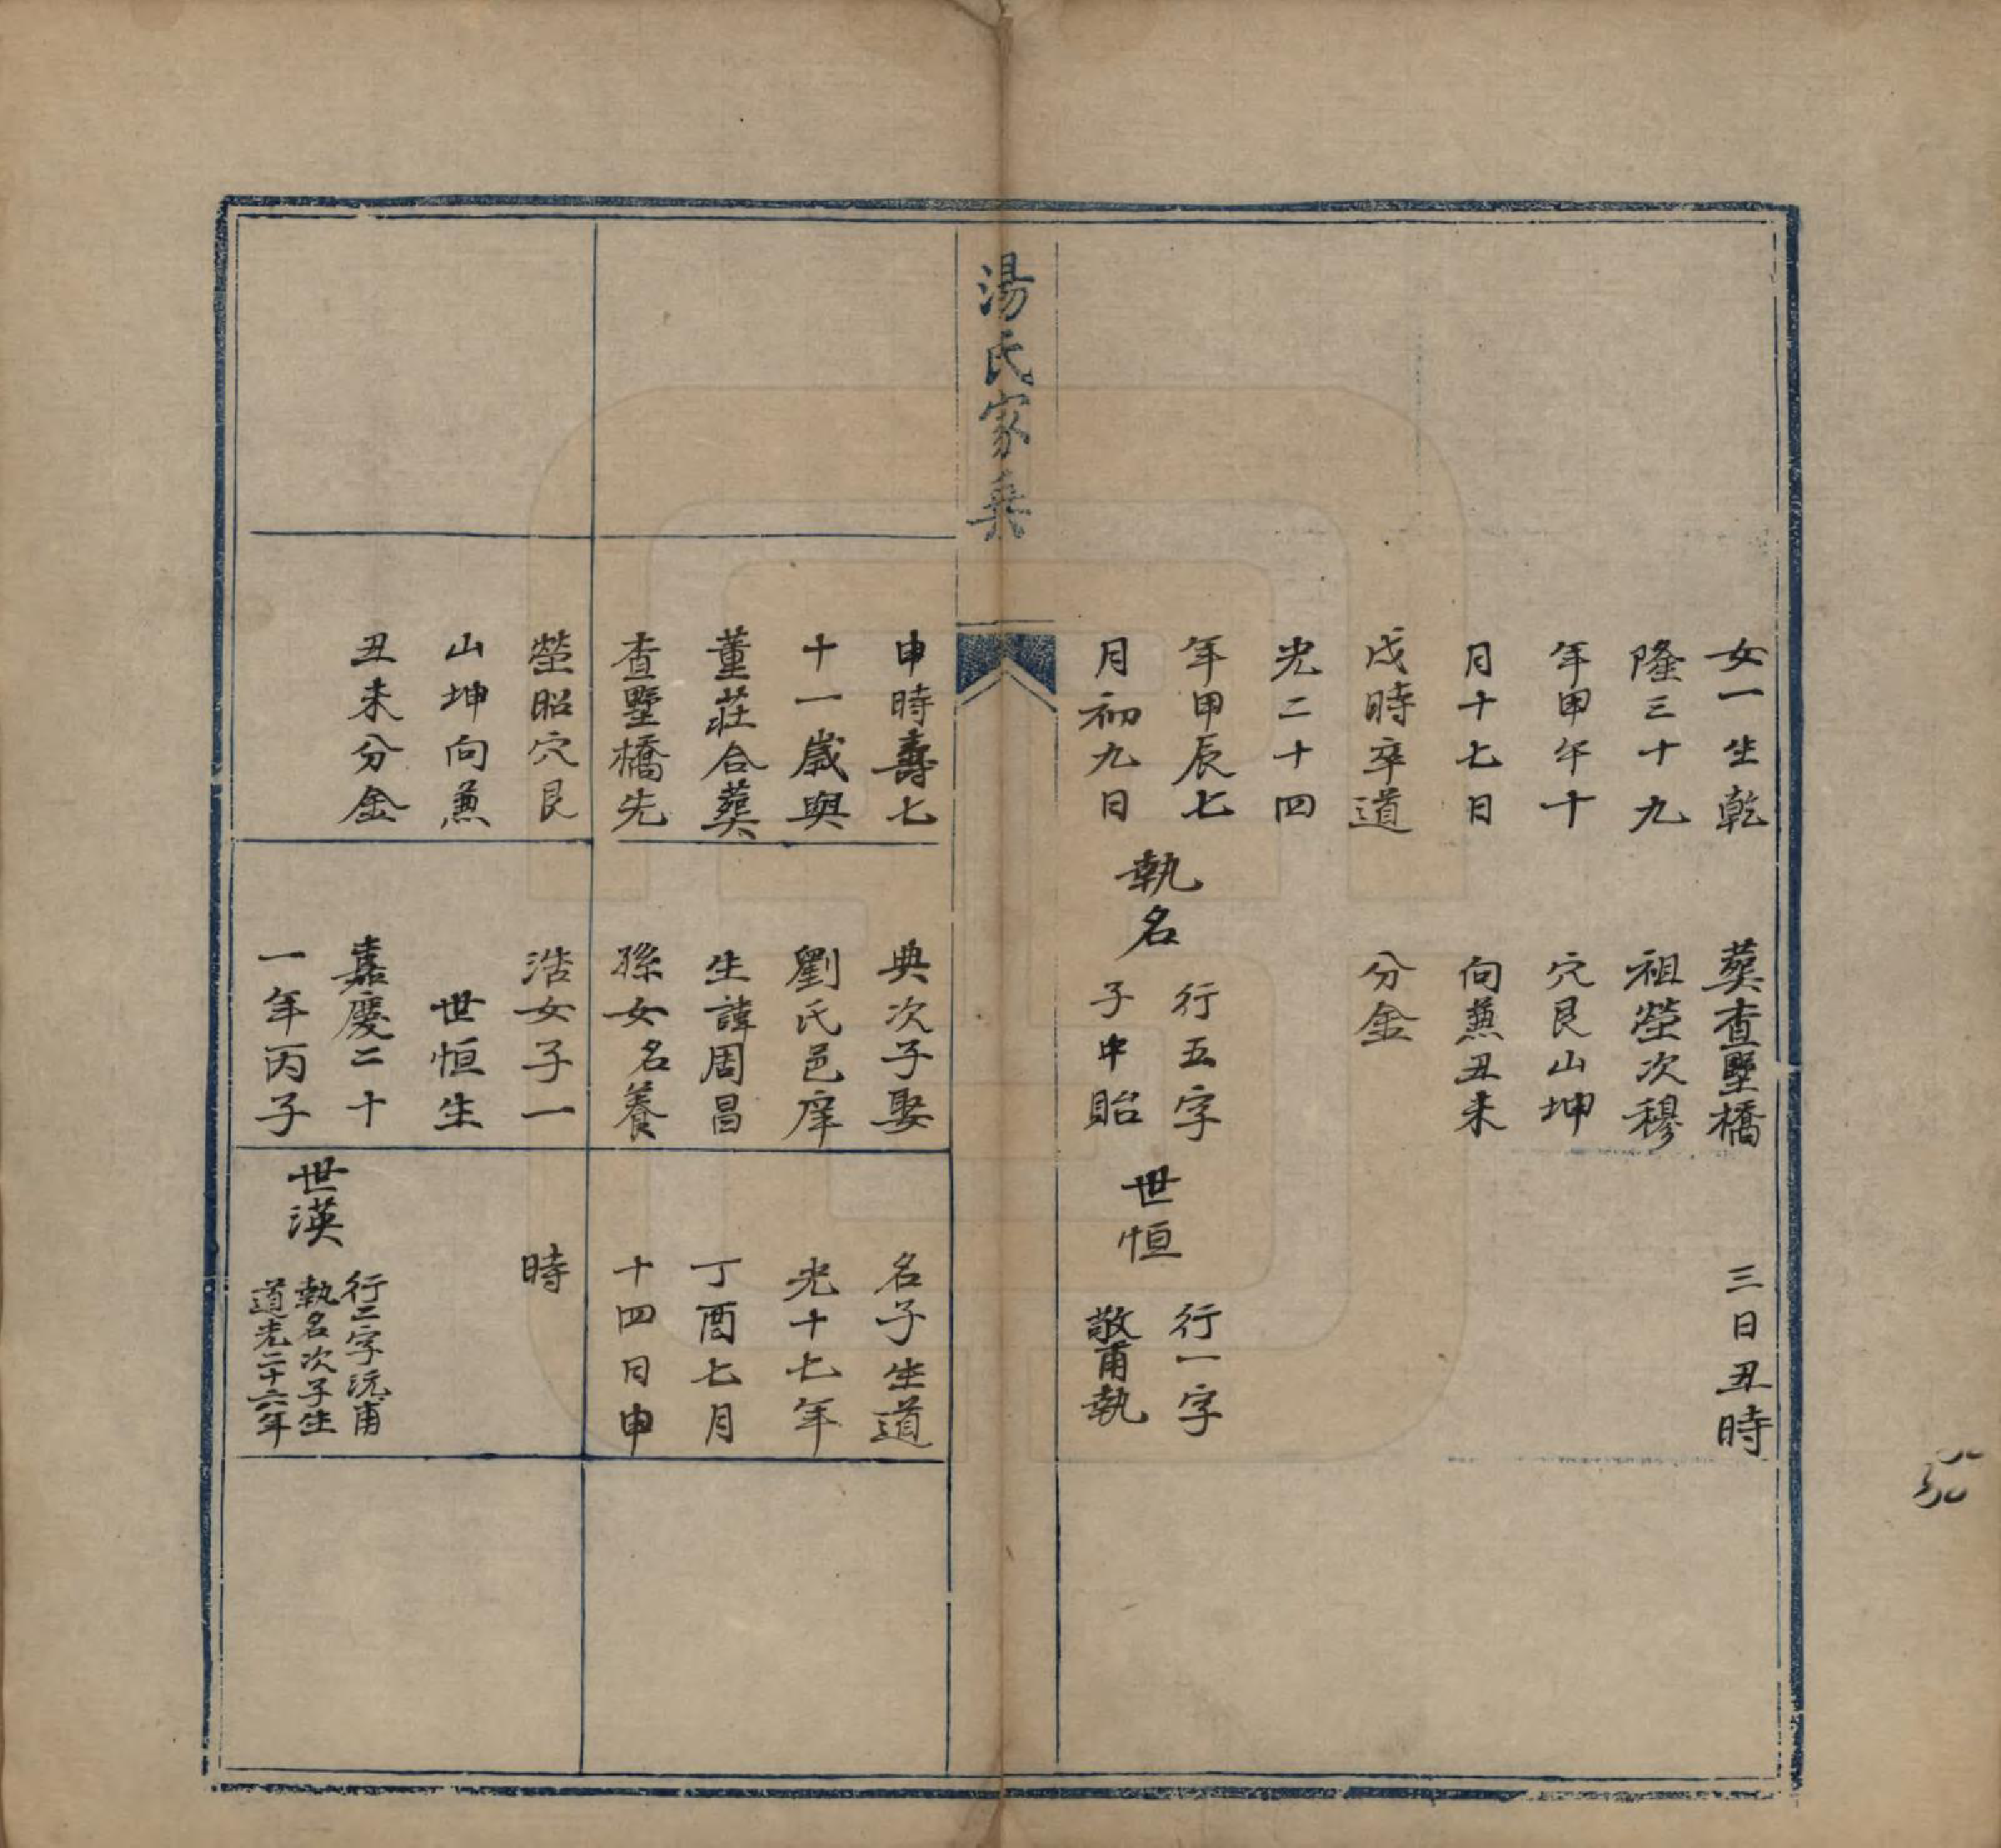 女一生乾
隆三十九
年甲午十
月十七日
戌時卒道
光二十四
年甲辰七
月初九日
葬查墅橋
祖塋次穆
穴艮山坤
向兼丑未
分金
執名
行五字
子中貽
三日丑時
世恒
行一字
敬甫執
湯氏家乘
申時壽七
十一歲與
董莊合葬
查墅橋先
塋昭穴艮
山坤向兼
丑未分金
典次子娶
劉氏邑庠
生諱周昌
孫女名養
浩女子一
世恒生
嘉慶二十
一年丙子
名子生道
光十七年
丁酉七月
十四日申
時
世漢
行二字沅甫
執名次子生
道光二十六年